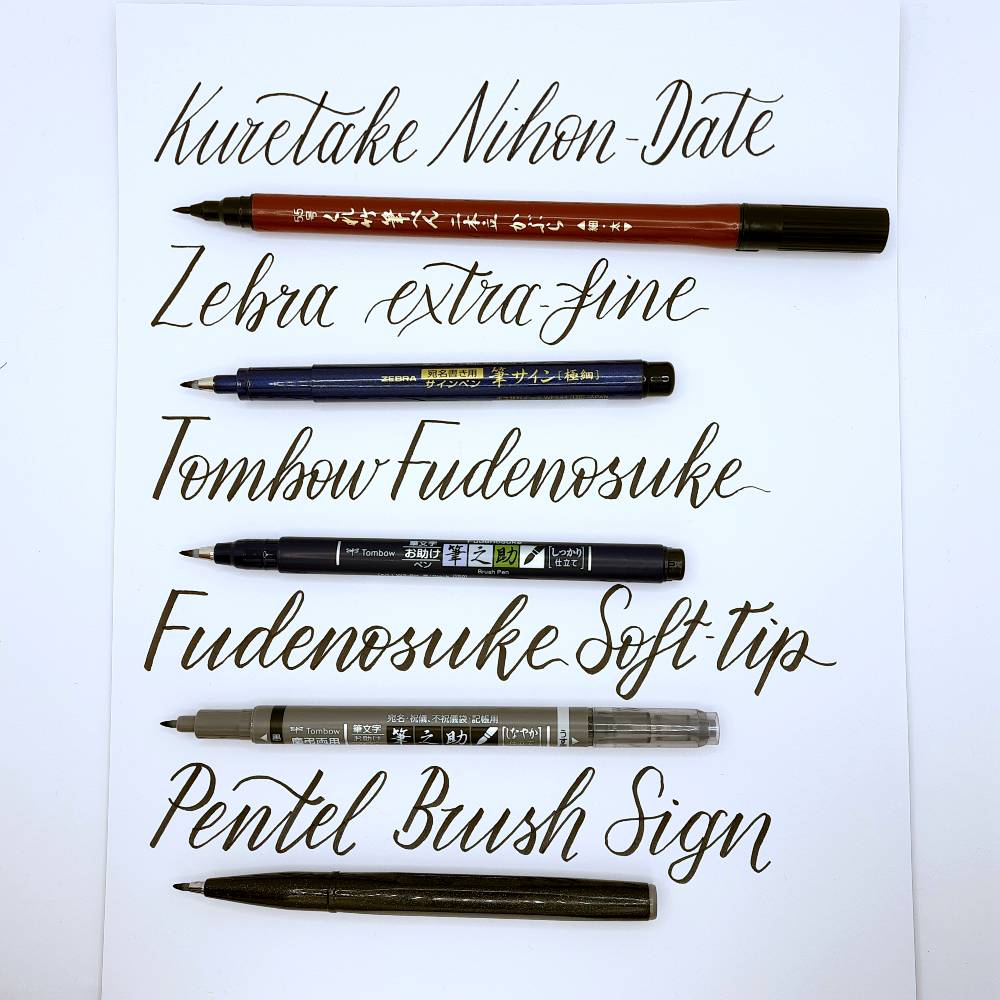 Kuretake Nihon-Date
55号 くれ竹筆ぺん 二本立 かぶら ◀細・太▶
Zebra extra-fine
ZEBRA 宛名書き用 サインペン 筆サイン[極細]
Tombow Fudenosuke
Tombow 筆文字 お助け ペン 筆之助 しっかり 仕立て
Brush Pen
Fudenosuke Soft-tip
宛名・祝儀、不祝儀袋・記帳用
Tombow 慶弔両用 筆文字 お助け 筆之助 しなやか
Pentel Brush Sign